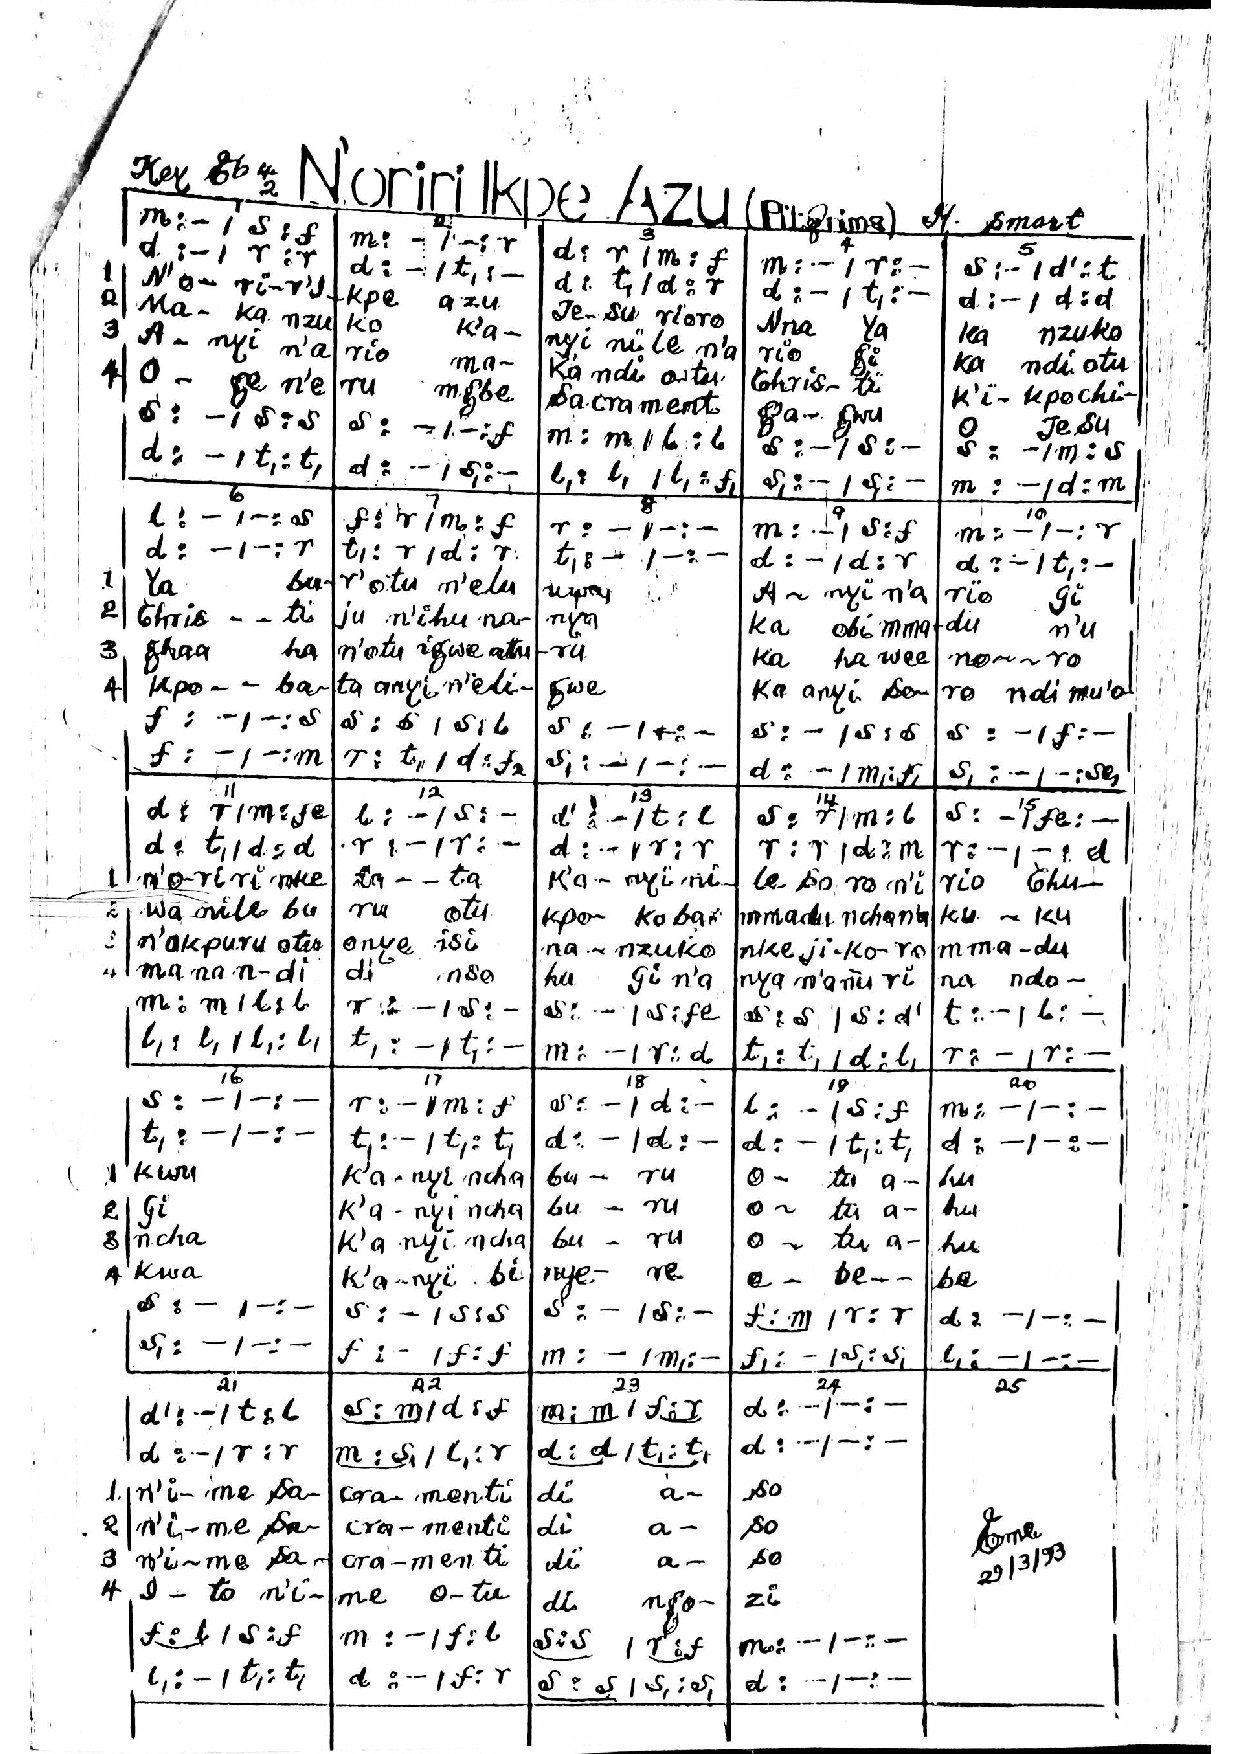 Key Eb 4/2 N'oriri Ikpe Azu (Pilgrims) H. Smart
1 2 3 4 5
m :- / s : f m : - / - : r d : r / m : f m : - / r : - s : - / d' : t
d :- / r : r d : - / t, : - d : t, / d : r d : - / t, : - d : - / d : d
1 N'o- ri-r'i- kpe azu Je-su rioro Nna Ya ka nzuko
2 Ma- ka nzu ko k'a- nyi nile n'a rio gi ka ndi otu
3 A- nyi n'a rio ma- ka ndi o-tu Chris-ti k'i-kpochi-
4 O- ge n'e ru mgbe Sacrament ga-gwu O Jesu
s : - / s : s s : - / - : f m : m / l : l s : - / s : - s : - / m : s
d : - / t, : t, d : - / s, : - l, : l, / l, : f, s, : - / s, : - m : - / d : m
6 7 8 9 10
l : - / - : s f : r / m : f r : - / - : - m : - / s : f m : - / - : r
d : - / - : r t, : r / d : r t, : - / - : - d : - / d : r d : - / t, : -
1 Ya bu- r'otu n'elu uwa A- nyi n'a rio gi
2 Chris - - ti ju n'ihu na- nya ka obi mma-du n'u
3 ghaa ha n'otu igwe atu-ru ka ha wee no-~ro
4 kpo- - ba- ta anyi n'eli- gwe Ka anyi so- ro ndi mu'o
f : - / - : s s : s / s : l s : - / - : - s : - / s : s s : - / f : -
f : - / - : m r : t, / d : f, s, : - / - : - d : - / m, : f, s, : - / - : se,
11 12 13 14 15
d : r / m : fe l : - / s : - d' : - / t : l s : r / m : l s : - / fe : -
d : t, / d : d r : - / r : - d : - / r : r r : r / d : m r : - / - : d
1 n'o-ri ri nke ta - - ta K'a-nyi ni- le so ro n'i rio Chu-
2 wa nile bu ru otu kpo- koba mmadu nchana ku ~ ku
3 n'okpuru otu onye isi na ~ nzuko nke ji-ko-ro mma-du
4 ma na n-di di nso hu gi n'a nya n'anu ri na ndo-
m : m / l : l r : - / s : - s : - / s : fe s : s / s : d' t : - / l : -
l, : l, / l, : l, t, : - / t, : - m : - / r : d t, : t, / d : l, r : - / r : -
16 17 18 19 20
s : - / - : - r : - / m : f s : - / d : - l : - / s : f m : - / - : -
t, : - / - : - t, : - / t, : t, d : - / d : - d : - / t, : t, d : - / - : -
1 kwu K'a-nyi ncha bu- ru o- tu a- hu
2 gi K'a-nyi ncha bu - ru o ~ tu a- hu
3 ncha K'a nyi ncha bu - ru o ~ tu a- hu
4 kwa K'a-nyi bi nye- re e - be-- be
s : - / - : - s : - / s : s s : - / s : - f : m / r : r d : - / - : -
s, : - / - : - f : - / f : f m : - / m, : - f, : - / s, : s, l, : - / - : -
21 22 23 24 25
d' : - / t : l s : m / d : f m : m / f : r d : - / - : -
d : - / r : r m : s, / l, : r d : d / t, : t, d : - / - : -
1 n'i- me Sa- cra- menti di a- so
2 n'i-me Sa- cra-menti di a- so
3 n'i-me Sa- cra-men ti di a- so
4 I - to n'i- me o-tu di ngo- zi
f : l / s : f m : - / f : l s : s / r : f m : - / - : -
l, : - / t, : t, d : - / f : r s : s / s, : s, d : - / - : -
29/3/93